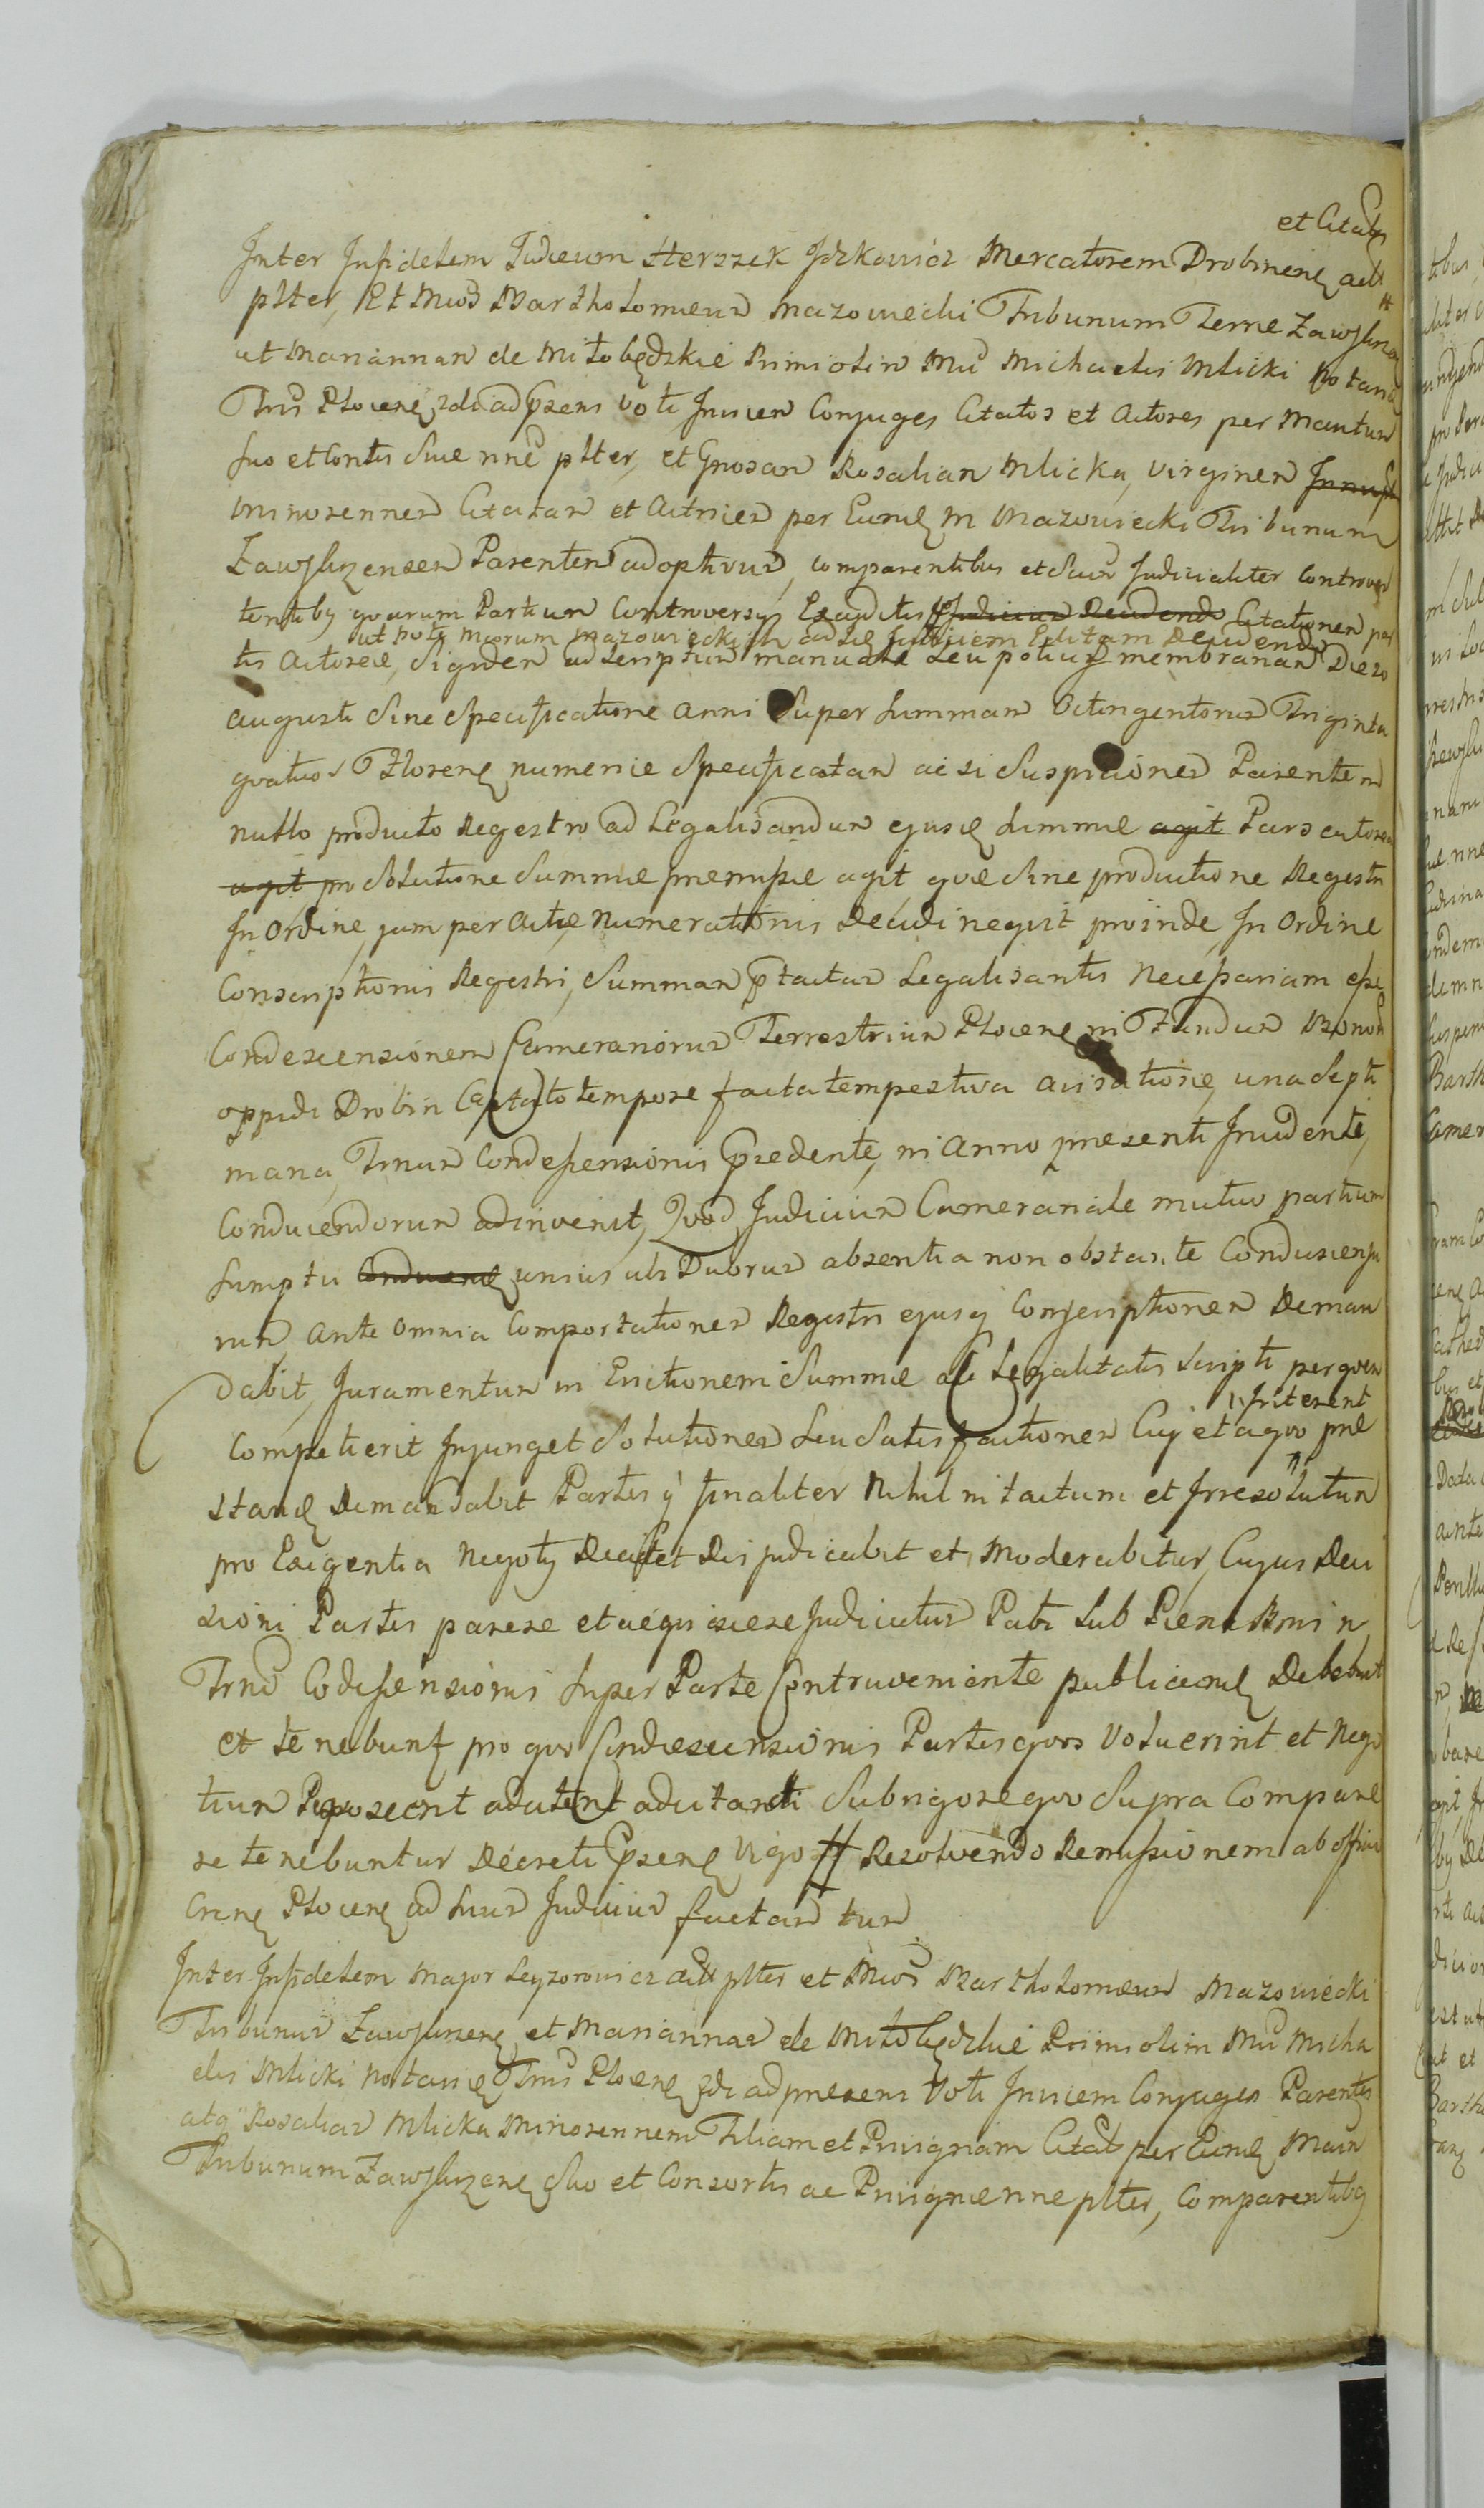 et Citatũ
Inter Infidelem Judæum Herszek Jckowicz Mercatorem Drobinenę act
plter, Et Mũd Bartholomeum Mazowiecki Tribunum Terræ Zawskrzn
ut Mariannam de Miłobędzkie Primi olim Mũ Michaelis Mlicki Notarii
Trris Plocenę 2di ad præsens Voti Invicem Conjuges Citatos et Actores per Maritum
suo et Contis suæ nne plter, et Gnosam Rosaliam Mlicka, Virginem Innupt
Minorennem Citatam et Actricem per Eundę M Mazowiecki Tribunum
Zawskrzensem Parentem adoptivum, comparentibus et suam Judicialiter Controver
tentibus quarum Partium Controversys Exauditis Judicium Decidendo Citationem par
ut pote Mcorum Mazowieckich ad se Judicem Editam Decidendo
tis Actoreæ, siquidem ad scriptum manuale seu potius membranam Die 20
Augusti sine specificatione anni super summam Octingentorum Triginta
quatuor Florenę numerice specificatam ac si suspicionem Parentem
nullo producto Regestro ad Legalisandum ejusdę summæ agit Pars actorea
agit pro solutione Summæ præmissæ agit quæ sine productione Regestri
In Ordine, jam per actię numerationis Decidi nequit proinde, In Ordine
Conscriptionis Regestri, summam ptactam Legalisantis Necessariam esse
Condescensionem Camerariorum Terrestrium Plocenę in Fundum Bonor
oppidi Drobin Captato tempore facta tempestiva avisatione, una septi
mana, Trnum Condescensionis Præcedente, in Anno præsenti Incidente,
Conducendorum adinvenit, Quod Judicium Camerariale mutuo partium
sumptu Conducendę unius ubi Duorum absentia non obstante Conduscensu
rum, ante omnia Comportationem Regestri ejusq Conscriptionem Deman
dabit, Juramentum in Evictionem Summæ ac Legalitatis scripti per quem
Interent
Competierit Injunget Solutionem seu Satisfactionem Cuj et a quo præ
standę Demandabit Partes q finaliter Nihil intactum et Irresolutum
pro Exigentia Negotii Decidet Disjudicabit et Moderabitur, Cujus Deci
sioni Partes parere et acquiescere Judicatum Pati sub Pœna Bonis in
Trno Codescensionis super Parte Contraveniente publicandę Debebunt
et tenebuntę pro quo Condescensionis Partes quos Voluerint et Nego
tium Reposcerit adcitent adcitandi sub rigore quo supra Compare
re tenebuntur Decreti Præsenę Vigore # Resolvendo Remissionem ab offici
Crenę Plocenę ad suum Judicium factam tum
Inter Infidelem Major Leyzorowicz act plter et Mũd Bartholomeum Mazowiecki
Tribunum Zawskrzenę et Mariannam de Miłobędzkie Primi olim Mũ Micha
elis Mlicki Notarię Trris Plocenę 2di ad præsens Voti Invicem Conjuges Parentes
atq Rosaliam Mlicka Minorennem Filiam et Privignam Citat per Eundę Marit
Tribunum Zawskrzenę suo et Consortis ac Privignæ nne plter, Comparentibq